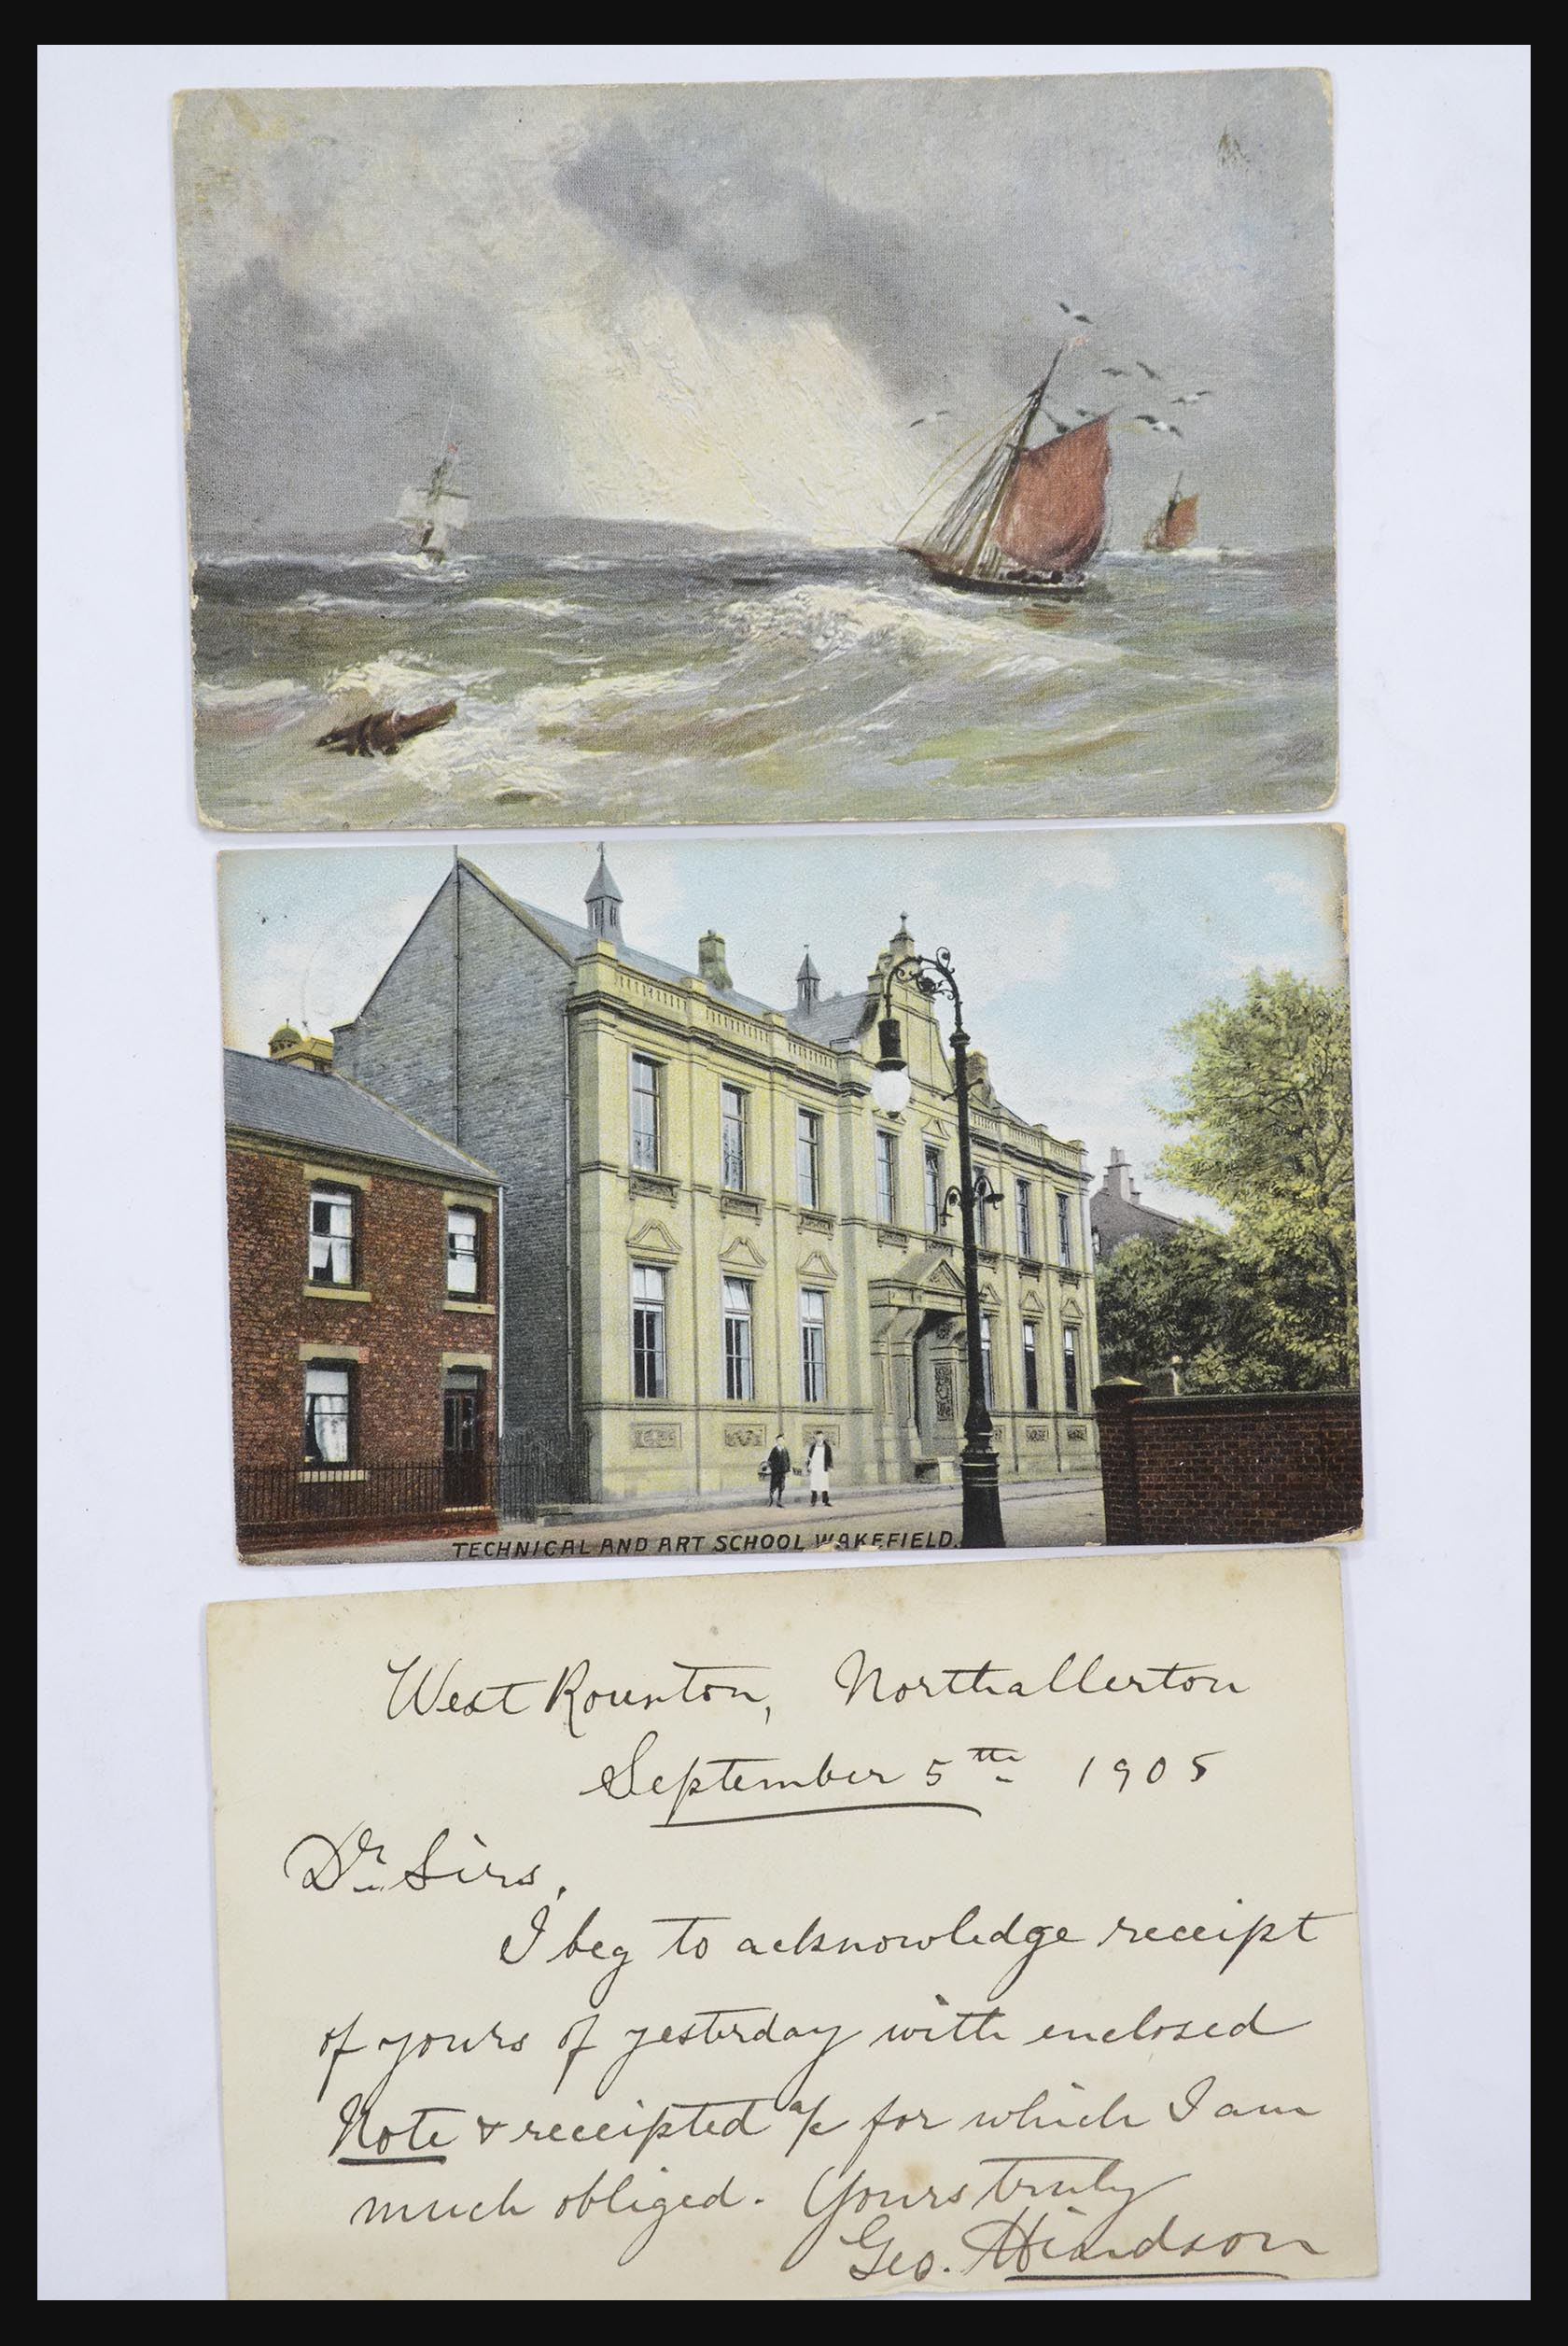 TECHNICAL AND ART SCHOOL WAKEFIELD.
West Rounton, Northallerton
September 5th 1905
Dr. Sirs,
I beg to acknowledge receipt
of yours of yesterday with enclosed
Note & receipted a/c for which I am
much obliged. Yours truly
Geo.